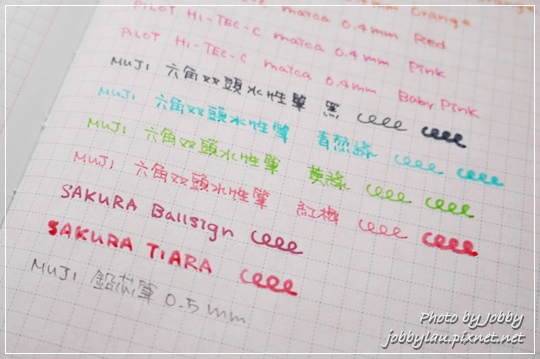 PILOT HI-TEC-C maica 0.4mm Orange
PILOT HI-TEC-C maica 0.4mm Red
PILOT HI-TEC-C maica 0.4mm Pink
PILOT HI-TEC-C maica 0.4mm Baby Pink
MUJI 六角双頭水性筆 黑
MUJI 六角双頭水性筆 青葱綠
MUJI 六角双頭水性筆 黄綠
MUJI 六角双頭水性筆 紅梅
SAKURA Ballsign
SAKURA TIARA
MUJI 鉛芯筆 0.5mm
Photo by Jobby
jobbylau.pixnet.net